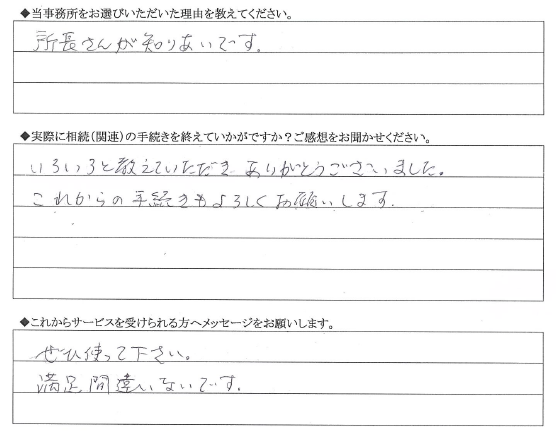 ◆当事務所をお選びいただいた理由を教えてください。
所長さんが知りあいです。
◆実際に相続(関連)の手続きを終えていかがですか?ご感想をお聞かせください。
いろいろと教えていただきありがとうございました。
これからの手続きもよろしくお願いします.
◆これからサービスを受けられる方へメッセージをお願いします。
ぜひ使って下さい。
満足間違いないです.